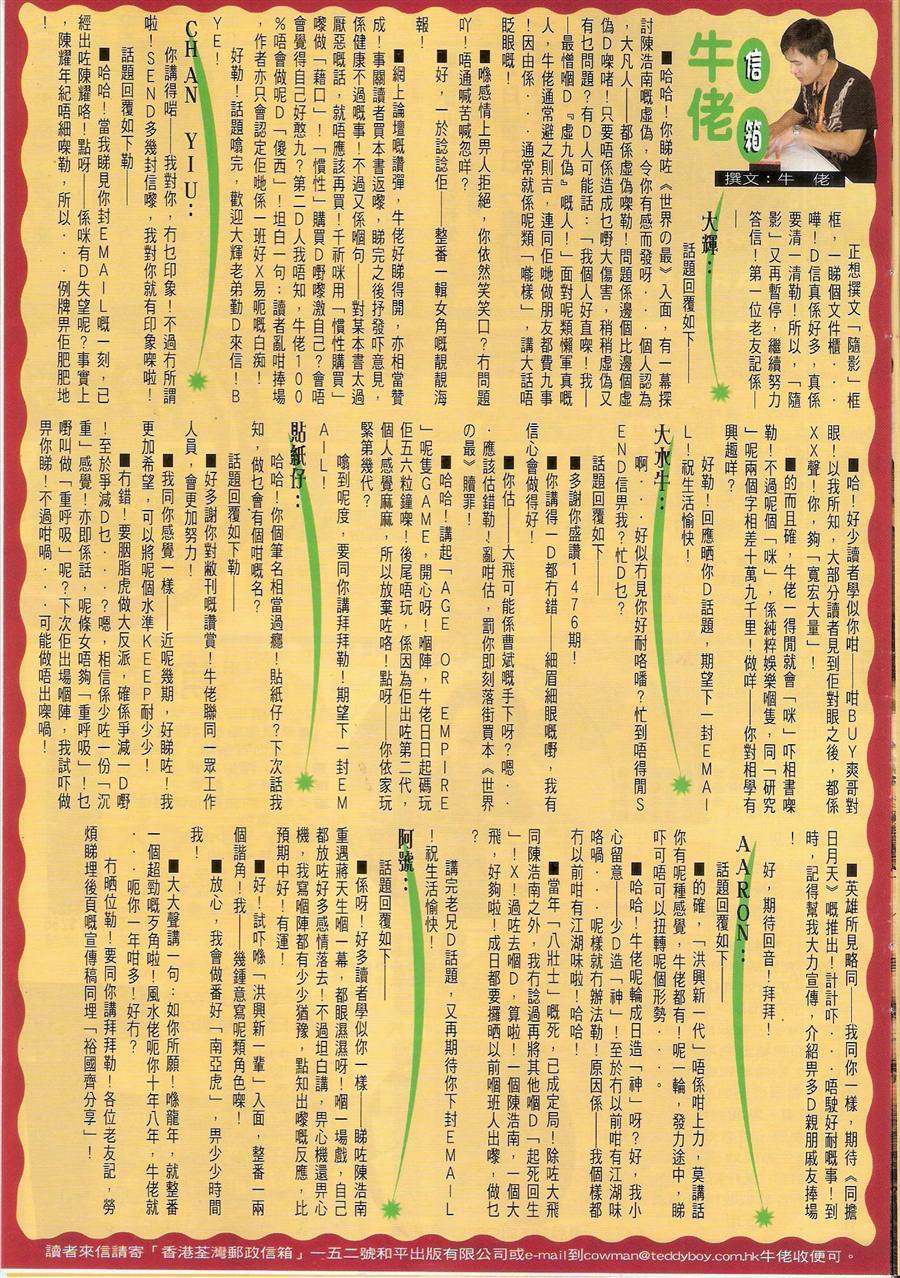 信箱
牛佬
撰文：牛　佬
正想撰文「隨影」框
框，一睇個文件櫃．．
嘩！D信真係好多，真係
要清一清勒！所以，「隨
影」又再暫停，繼續努力
答信！第一位老友記係—
—
大輝：
話題回覆如下——
■哈哈！你睇咗《世界の最》入面，有一幕探
討陳浩南嘅虛偽，令你有感而發呀．．個人認為
，大凡人——都係虛偽㗎勒！問題係邊個比邊個虛
偽D㗎啫！只要唔係造成乜嘢大傷害，稍稍虛偽又
有乜問題？有D人可能話：「我個人好直㗎！我—
—最憎嗰D『虛乜偽』嘅人！」面對呢類懶軍真嘅
人，牛佬通常避之則吉，連同佢哋做朋友都費九事
！因由係．．．通常就係呢類「嘥樣」，講大話唔
眨眼嘅！
■喺感情上畀人拒絕，你依然笑笑口？冇問題
吖！唔通喊苦喊忽咩？
■好，一於諗諗佢——整番一輯女角嘅靚靚海
報！
■網上論壇嘅讚彈，牛佬好睇得開，亦相當贊
成！事關讀者買本書返嚟，睇完之後抒發吓意見，
係健康不過嘅事！不過又係嗰句——對某本書太過
厭惡嘅話，就唔應該再買！千祈咪用「慣性購買」
嚟做「藉口」！「慣性」購買D嘢嚟激自己？會唔
會覺得自己好憨九？第二D人我唔知，牛佬100
%唔會做呢D「傻西」！坦白一句：讀者亂咁捧場
，作者亦只會認定佢哋係一班好X易呃嘅白痴！
好勒！話題噏完，歡迎大輝老弟勤D來信！B
YE！
CHAN YIU：
你講得啱——我對你，冇乜印象！不過冇所謂
啦！SEND多幾封信嚟，我對你就有印象㗎啦！
話題回覆如下勒——
■哈哈！當我睇見你封EMAIL嘅一刻，已
經出咗陳耀咯！點呀——係咪有D失望呢？事實上
，陳耀年紀唔細㗎勒，所以．．．例牌畀佢肥肥地
！
■哈！好少讀者學似你咁——咁BUY爽哥對
眼！以我所知，大部分讀者見到佢對眼之後，都係
XX聲！你，夠「寬宏大量」！
■的而且確，牛佬一得閒就會「咪」吓相書㗎
勒！不過呢個「咪」，係純粹娛樂嗰隻，同「研究
」呢兩個字相差十萬九千里！做咩——你對相學有
興趣咩？
好勒！回應晒你D話題，期望下一封EMAI
L！祝生活愉快！
大水牛：
啊．．．好似冇見你好耐咯噃？忙到唔得閒S
END信畀我？忙D乜？
話題回覆如下——
■多謝你盛讚1476期！
■你講得一D都冇錯——細眉細眼嘅嘢，我有
信心會做得好！
■你估——大飛可能係曹斌嘅手下呀？嗯．．
．應該估錯勒！亂咁估，罰你即刻落街買本《世界
の最》贖罪！
■哈哈！講起「AGE OR EMPIRE
」呢隻GAME，開心呀！嗰陣，牛佬日日起碼玩
佢五六粒鐘㗎！後尾唔玩，係因為佢出咗第二代，
個人感覺麻麻，所以放棄咗咯！點呀——你依家玩
緊第幾代？
噏到呢度，要同你講拜拜勒！期望下一封EM
AIL！
貼紙仔：
哈哈！你個筆名相當過癮！貼紙仔？下次話我
知，做乜會有個咁嘅名？
話題回覆如下勒——
■好多謝你對敝刊嘅讚賞！牛佬聯同一眾工作
人員，會更加努力！
■我同你感覺一樣——近呢幾期，好睇咗！我
更加希望，可以將呢個水準KEEP耐少少！
■冇錯！要胭脂虎做大反派，確係爭減一D嘢
！至於爭減D乜．．？嗯，相信係少咗一份「沉
重」感覺！亦即係話，呢條女唔夠「重呼吸」！乜
嘢叫做「重呼吸」呢？下次佢出場嗰陣，我試吓做
畀你睇！不過咁喎．．．可能做唔出㗎喎！
■英雄所見略同——我同你一樣，期待《同擔
日月天》嘅推出！計計吓．．唔駛好耐嘅事！到
時，記得幫我大力宣傳，介紹畀多D親朋戚友捧場
！
好，期待回音！拜拜！
AARON：
話題回覆如下——
■的確，「洪興新一代」唔係咁上力，莫講話
你有呢種感覺，牛佬都有！呢一輪，發力途中，睇
吓可唔可以扭轉呢個形勢．．．。
■哈哈！牛佬呢輪成日造「神」呀？好，我小
心留意——少D造「神」！至於冇以前咁有江湖味
咯喎．．．呢樣就冇辦法勒！原因係——我個樣都
冇以前咁有江湖味啦！哈哈！
■當年「八壯士」嘅死，已成定局！除咗大飛
同陳浩南之外，我冇諗過再將其他嗰D「起死回生
」！X！過咗去嗰D，算啦！一個陳浩南，一個大
飛，好夠啦！成日都要攞晒以前嗰班人出嚟，做乜
？
講完老兄D話題，又再期待你下封EMAIL
！祝生活愉快！
阿號：
話題回覆如下——
■係呀！好多讀者學似你一樣——睇咗陳浩南
重遇蔣天生嗰一幕，都眼濕濕呀！嗰一場戲，自己
都放咗好多感情落去！不過坦白講，畀心機還畀心
機，我寫嗰陣都有少少猶豫，點知出嚟嘅反應，比
預期中好！有運！
■好！試吓喺「洪興新一輩」入面，整番一兩
個諧角！我——幾鍾意寫呢類角色㗎！
■放心，我會做番好「南亞虎」，畀少少時間
我！
■大大聲講一句：如你所願！喺龍年，就整番
一個超勁嘅歹角啦！風水佬呃你十年八年，牛佬就
．．．呃你一年咁多！好冇？
冇晒位勒！要同你講拜拜勒！各位老友記，勞
煩睇埋後頁嘅宣傳稿同埋「裕國齊分享」！
讀者來信請寄「香港荃灣郵政信箱」一五二號和平出版有限公司或e-mail到cowman@teddyboy.com.hk牛佬收便可。